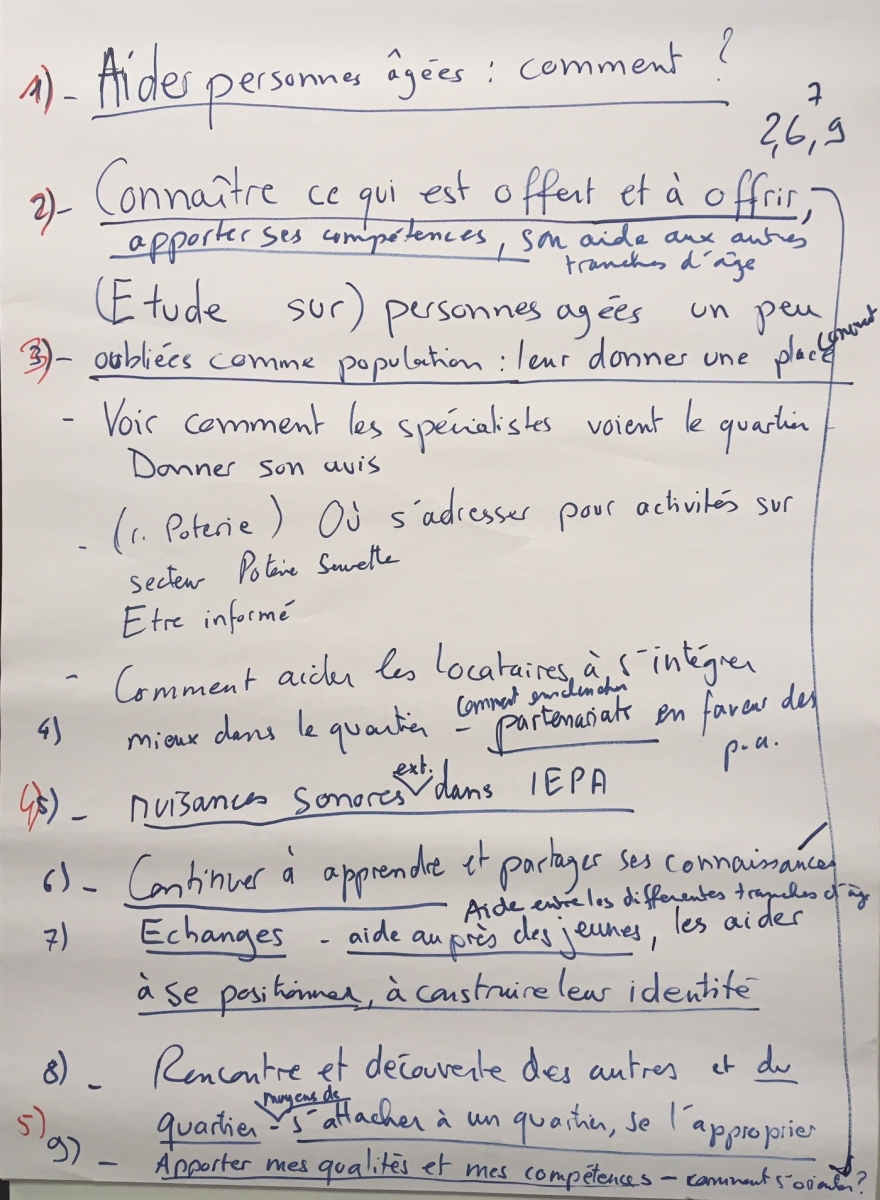 1) - Aider personnes âgées : comment ?
7
2, 6, 9
2) - Connaître ce qui est offert et à offrir,
apporter ses compétences, son aide aux autres
tranches d'âge
(Etude sur) personnes agées un peu
3) - oubliées comme population : leur donner une place comment
- Voir comment les spécialistes voient le quartier
Donner son avis
- (r. Poterie) Où s'adresser pour activités sur
secteur Poterie
Etre informé
- Comment aider les locataires à s'intégrer
comment enclencher
4) mieux dans le quartier - partenariats en faveur des
p.a.
ext.
4) 5) - nuisances sonores dans IEPA
6) - Continuer à apprendre et partager ses connaissances
Aide entre les différentes tranches d'âge
7) Echanges - aide auprès des jeunes, les aider
à se positionner, à construire leur identité
8) - Rencontre et découverte des autres et du
moyens de
quartier - s'attacher à un quartier, se l'approprier
5) 9) - Apporter mes qualités et mes compétences - comment s'orienter ?